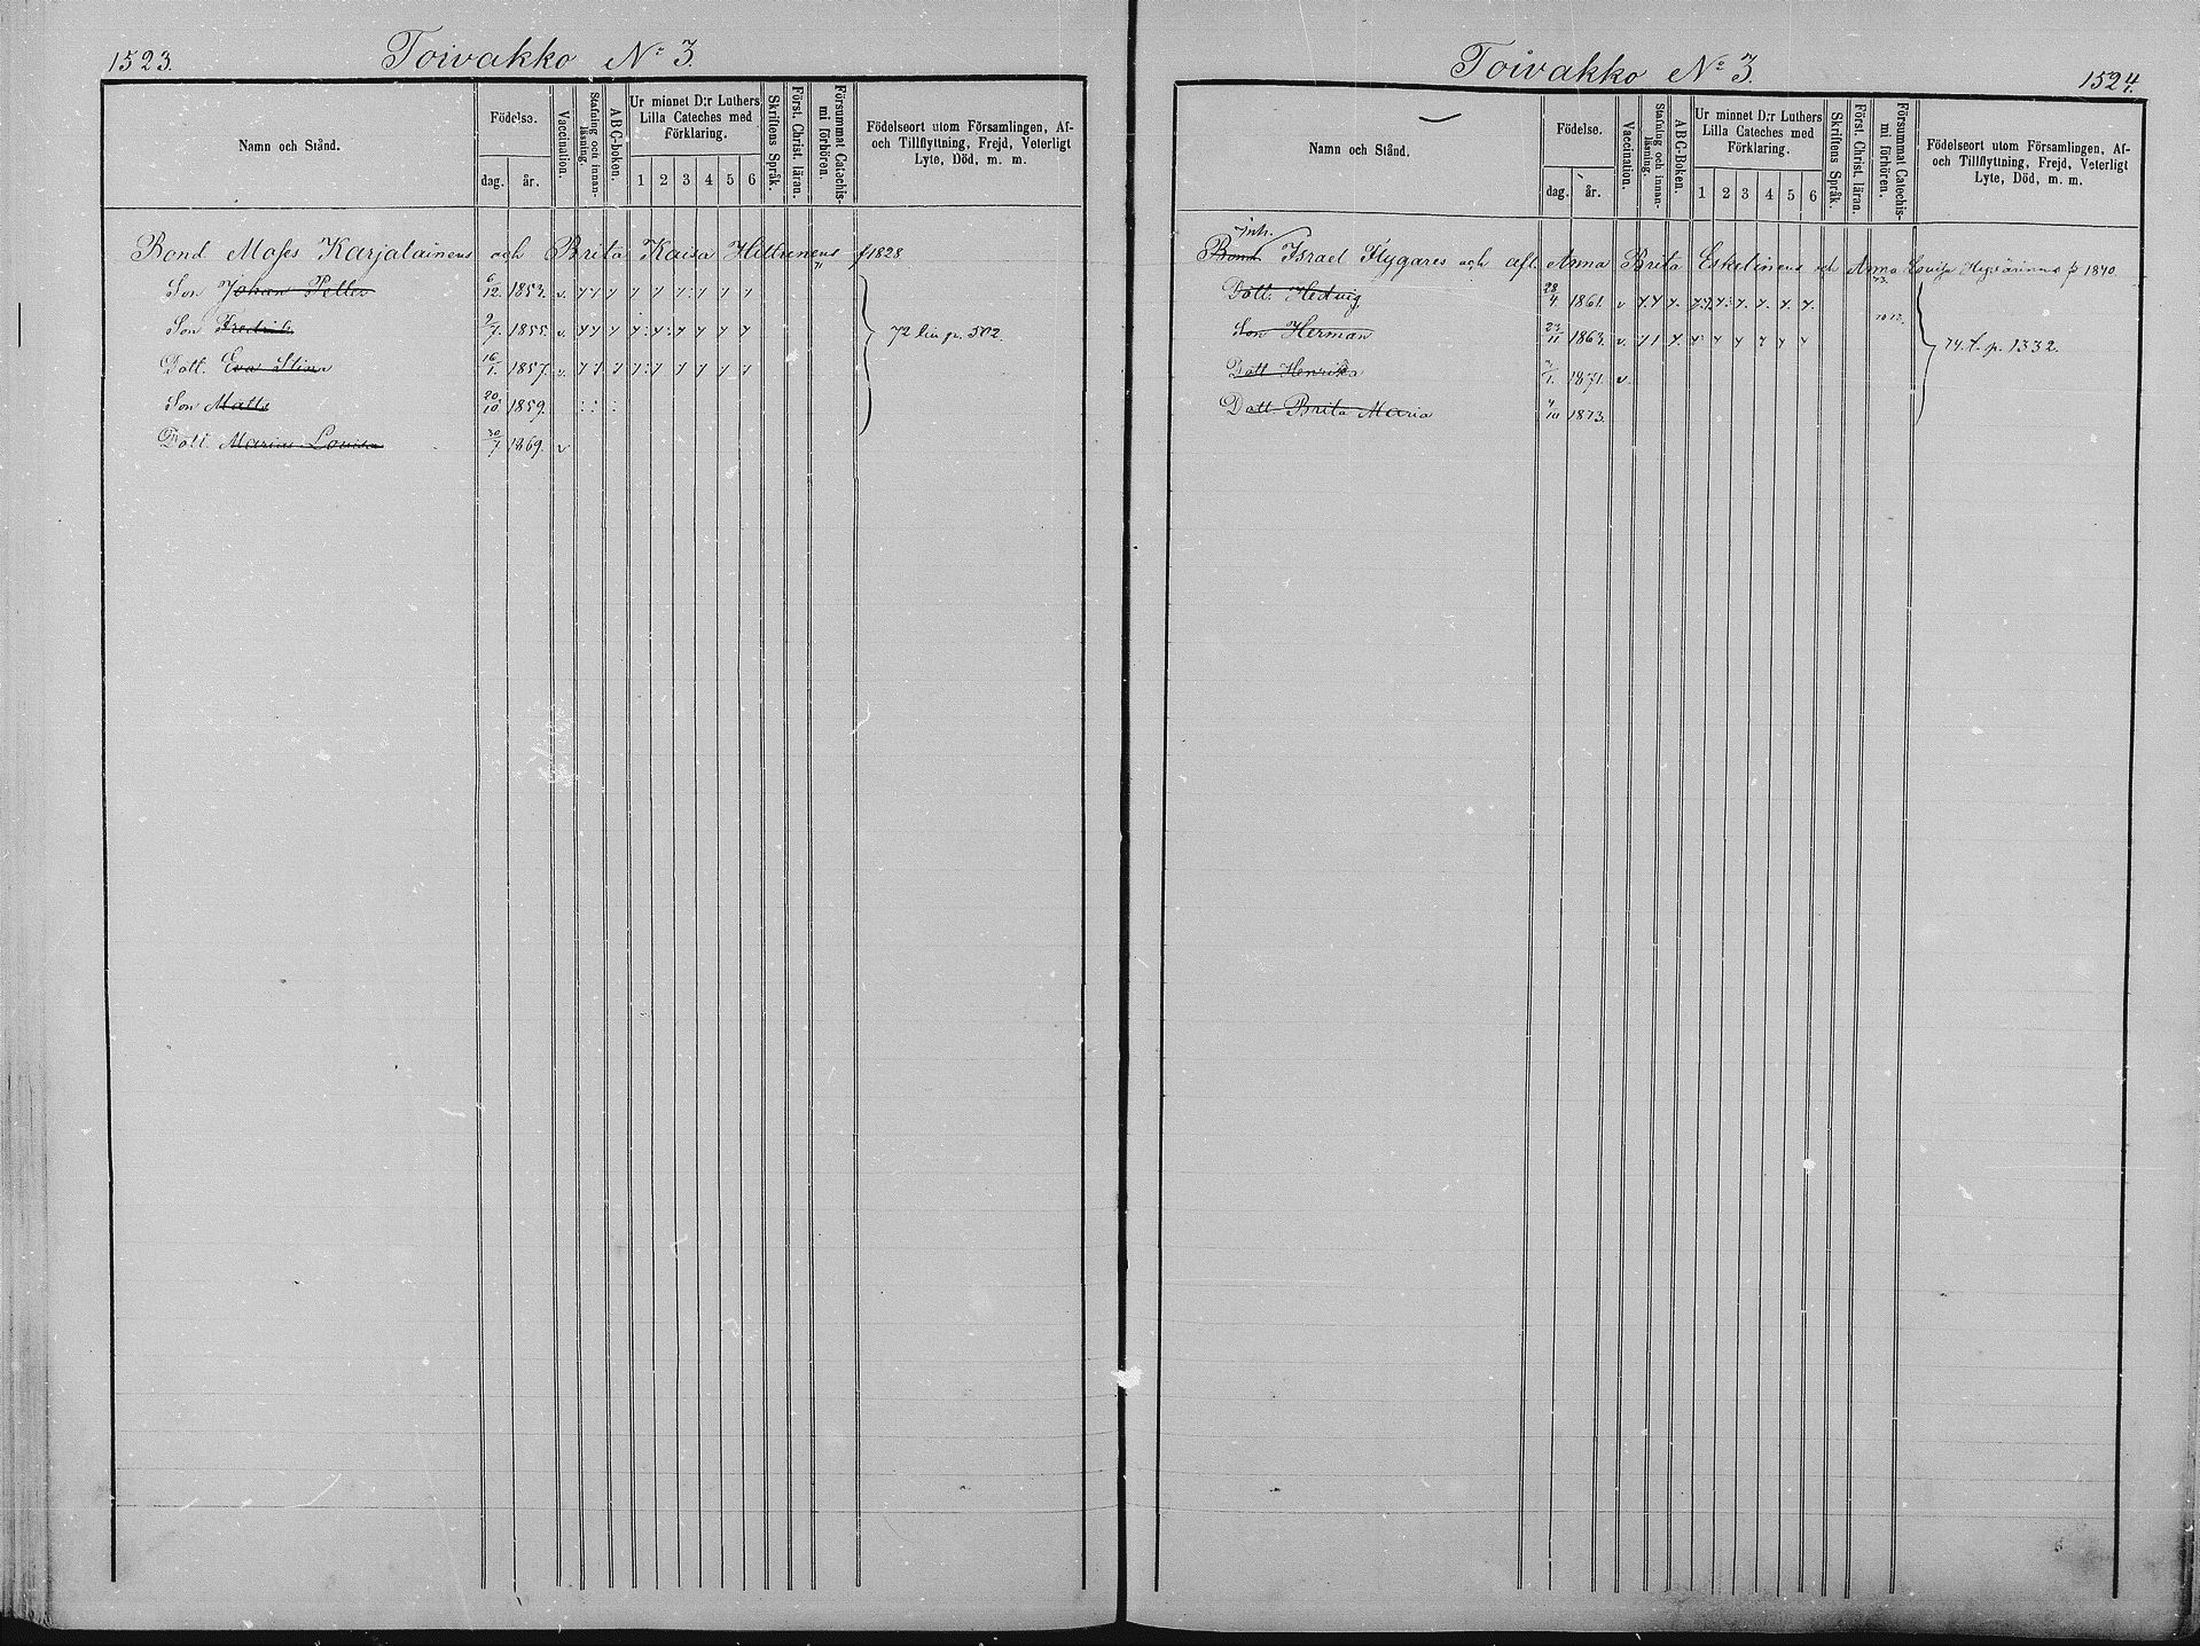 1523.
Toivakko No 3.
Namn och Stånd.
Födelse.
dag. år.
Vaccination.
Stafning och innanläsning.
A B C-boken.
Ur minnet D:r Luthers Lilla Cateches med Förklaring.
1 2 3 4 5 6
Skriftens Språk.
Först. Christ. läran.
Försummat Catechismi förhören.
Födelseort utom Församlingen, Af- och Tillflyttning, Frejd, Veterligt Lyte, Död, m. m.
Bond Moses Karjalainens och Brita Kaisa Hiltunens f 1828
71
Son Johan Petter 6/12. 1853. v.
Son Fredrik 9/7. 1855. v. 72 lin p. 502.
Dott. Eva Stina 16/1. 1857. v.
Son Matts 20/10 1859.
Dott. Maria Lovisa 30/7 1869. v
Toivakko No 3.
1524.
Namn och Stånd.
Födelse.
dag. år.
Vaccination.
Stafning och innanläsning.
A B C-Boken.
Ur minnet D:r Luthers Lilla Cateches med Förklaring.
1 2 3 4 5 6
Skriftens Språk.
Först. Christ. läran.
Försummat Catechismi förhören.
Födelseort utom Församlingen, Af- och Tillflyttning, Frejd, Veterligt Lyte, Död, m. m.
inh.
Bond Israel Flygares och afl. Anna Brita Eskelinens och Anna Lovisa f 1840
73.
Dott. Hedvig 28/4. 1861. v
Son Herman 23/11 1863. v. 74. t. p. 1332.
Dott Henrika 1871. v.
Dott. Brita Maria 4/10 1873.